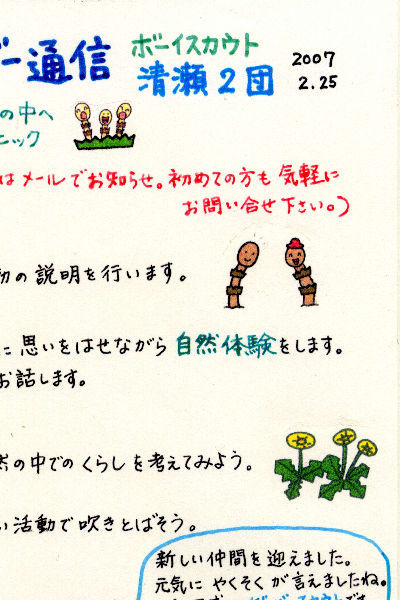 ー通信
ボーイスカウト
清瀬2団
2007
2.25
の中へ
ニック
はメールでお知らせ。初めての方も気軽に
お問い合せ下さい。)
初の説明を行います。
に思いをはせながら自然体験をします。
お話します。
然の中でのくらしを考えてみよう。
い活動で吹きとばそう。
新しい仲間を迎えました。
元気にやくそくが言えましたね。